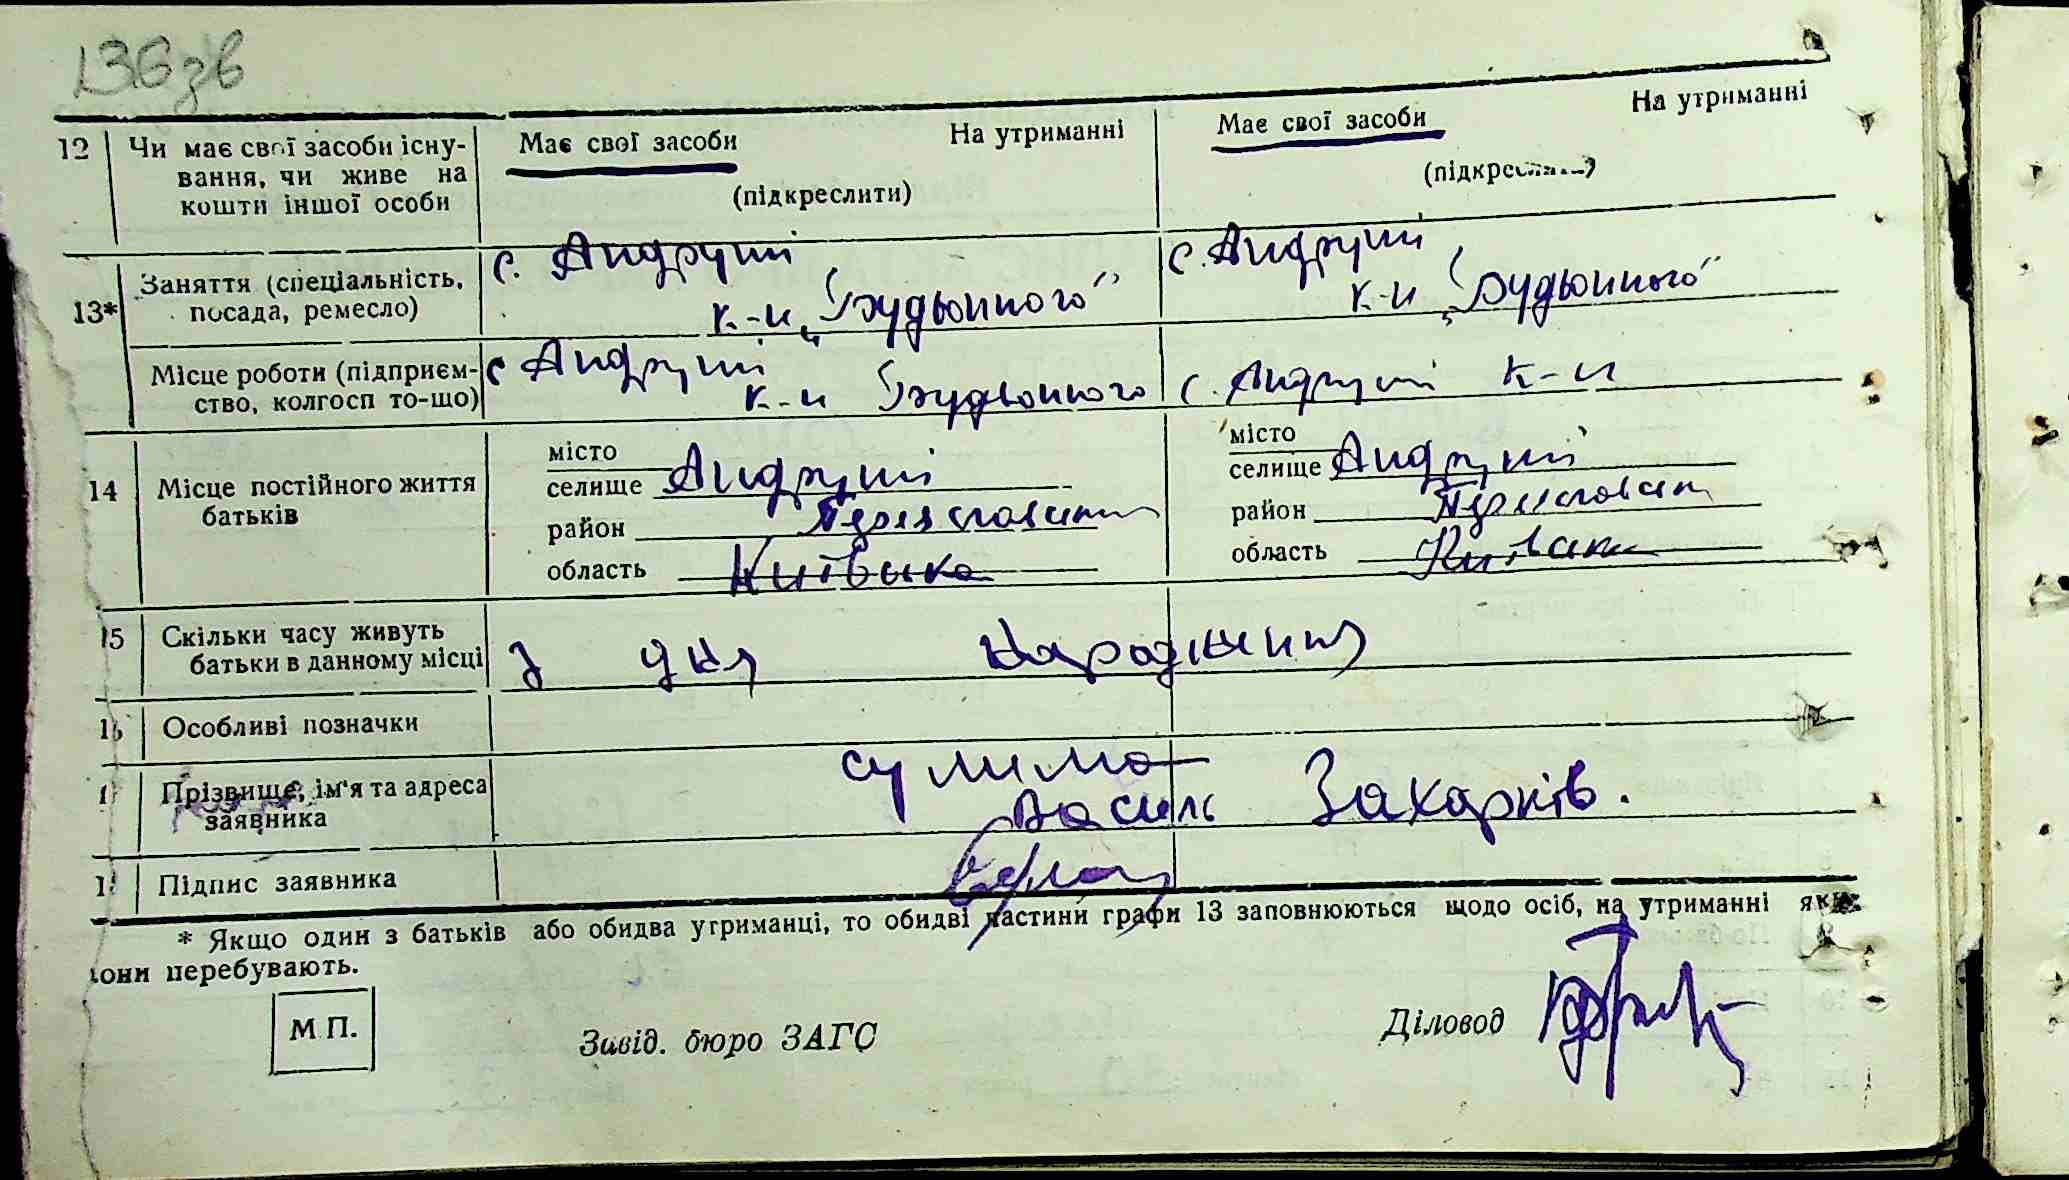 136 зв
12 Чи має свої засоби існу-
вання, чи живе на
кошти іншої особи
Має свої засоби На утриманні
(підкреслити)
Має свої засоби На утриманні
(підкреслити)
13* Заняття (спеціальність,
посада, ремесло)
с. Андруші
к-и „Будьонного"
с. Андруші
к-и „Будьонного"
Місце роботи (підприєм-
ство, колгосп то-що)
с Андруші
к-и Будьонного
с. Андруші к-и
14 Місце постійного життя
батьків
місто
селище Андруші
район
область Київська
місто
селище Андруші
район
область
15 Скільки часу живуть
батьки в данному місці
з дня народження
Особливі позначки
Прізвище, ім'я та адреса
заявника
Сулима
Василь Захарків.
Підпис заявника
* Якщо один з батьків або обидва утриманці, то обидві частини графи 13 заповнюються щодо осіб, на утриманні яких
вони перебувають.
М П.
Завід. бюро ЗАГС
Діловод